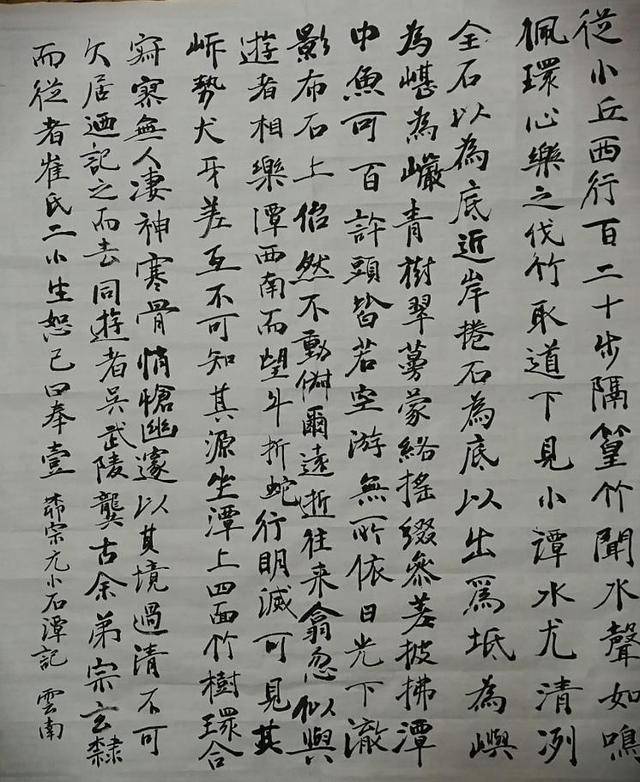 從小丘西行百二十步隔篁竹聞水聲如鳴
佩環心樂之伐竹取道下見小潭水尤清冽
全石以為底近岸捲石為底以出爲坻為嶼
為嵁為巖青樹翠蔓蒙絡搖綴參差披拂潭
中魚可百許頭皆若空游無所依日光下澈
影布石上佁然不動俶爾遠逝往来翕忽似與
遊者相樂潭西南而望斗折蛇行明滅可見其
岍勢犬牙差互不可知其源坐潭上四面竹樹環合
寂寥無人凄神寒骨悄愴幽邃以其境過清不可
久居迺記之而去同遊者吳武陵龔古余弟宗玄隸
而從者崔氏二小生恕己曰奉壹 柳宗元小石潭記 雲南